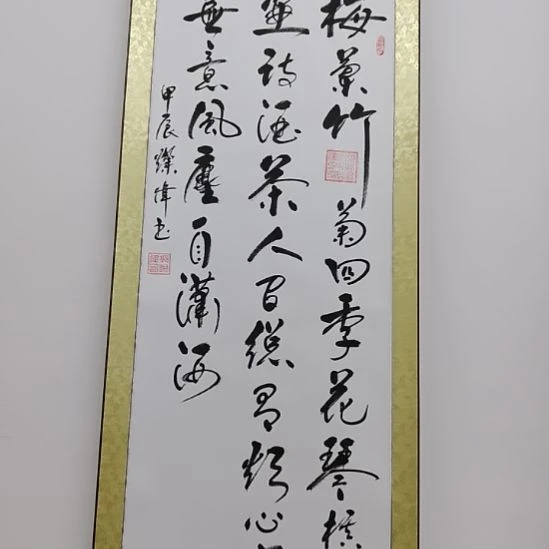 梅兰竹菊四季花琴棋
画诗酒茶人间总是烦心
无意风尘自潇洒
甲辰 伟书